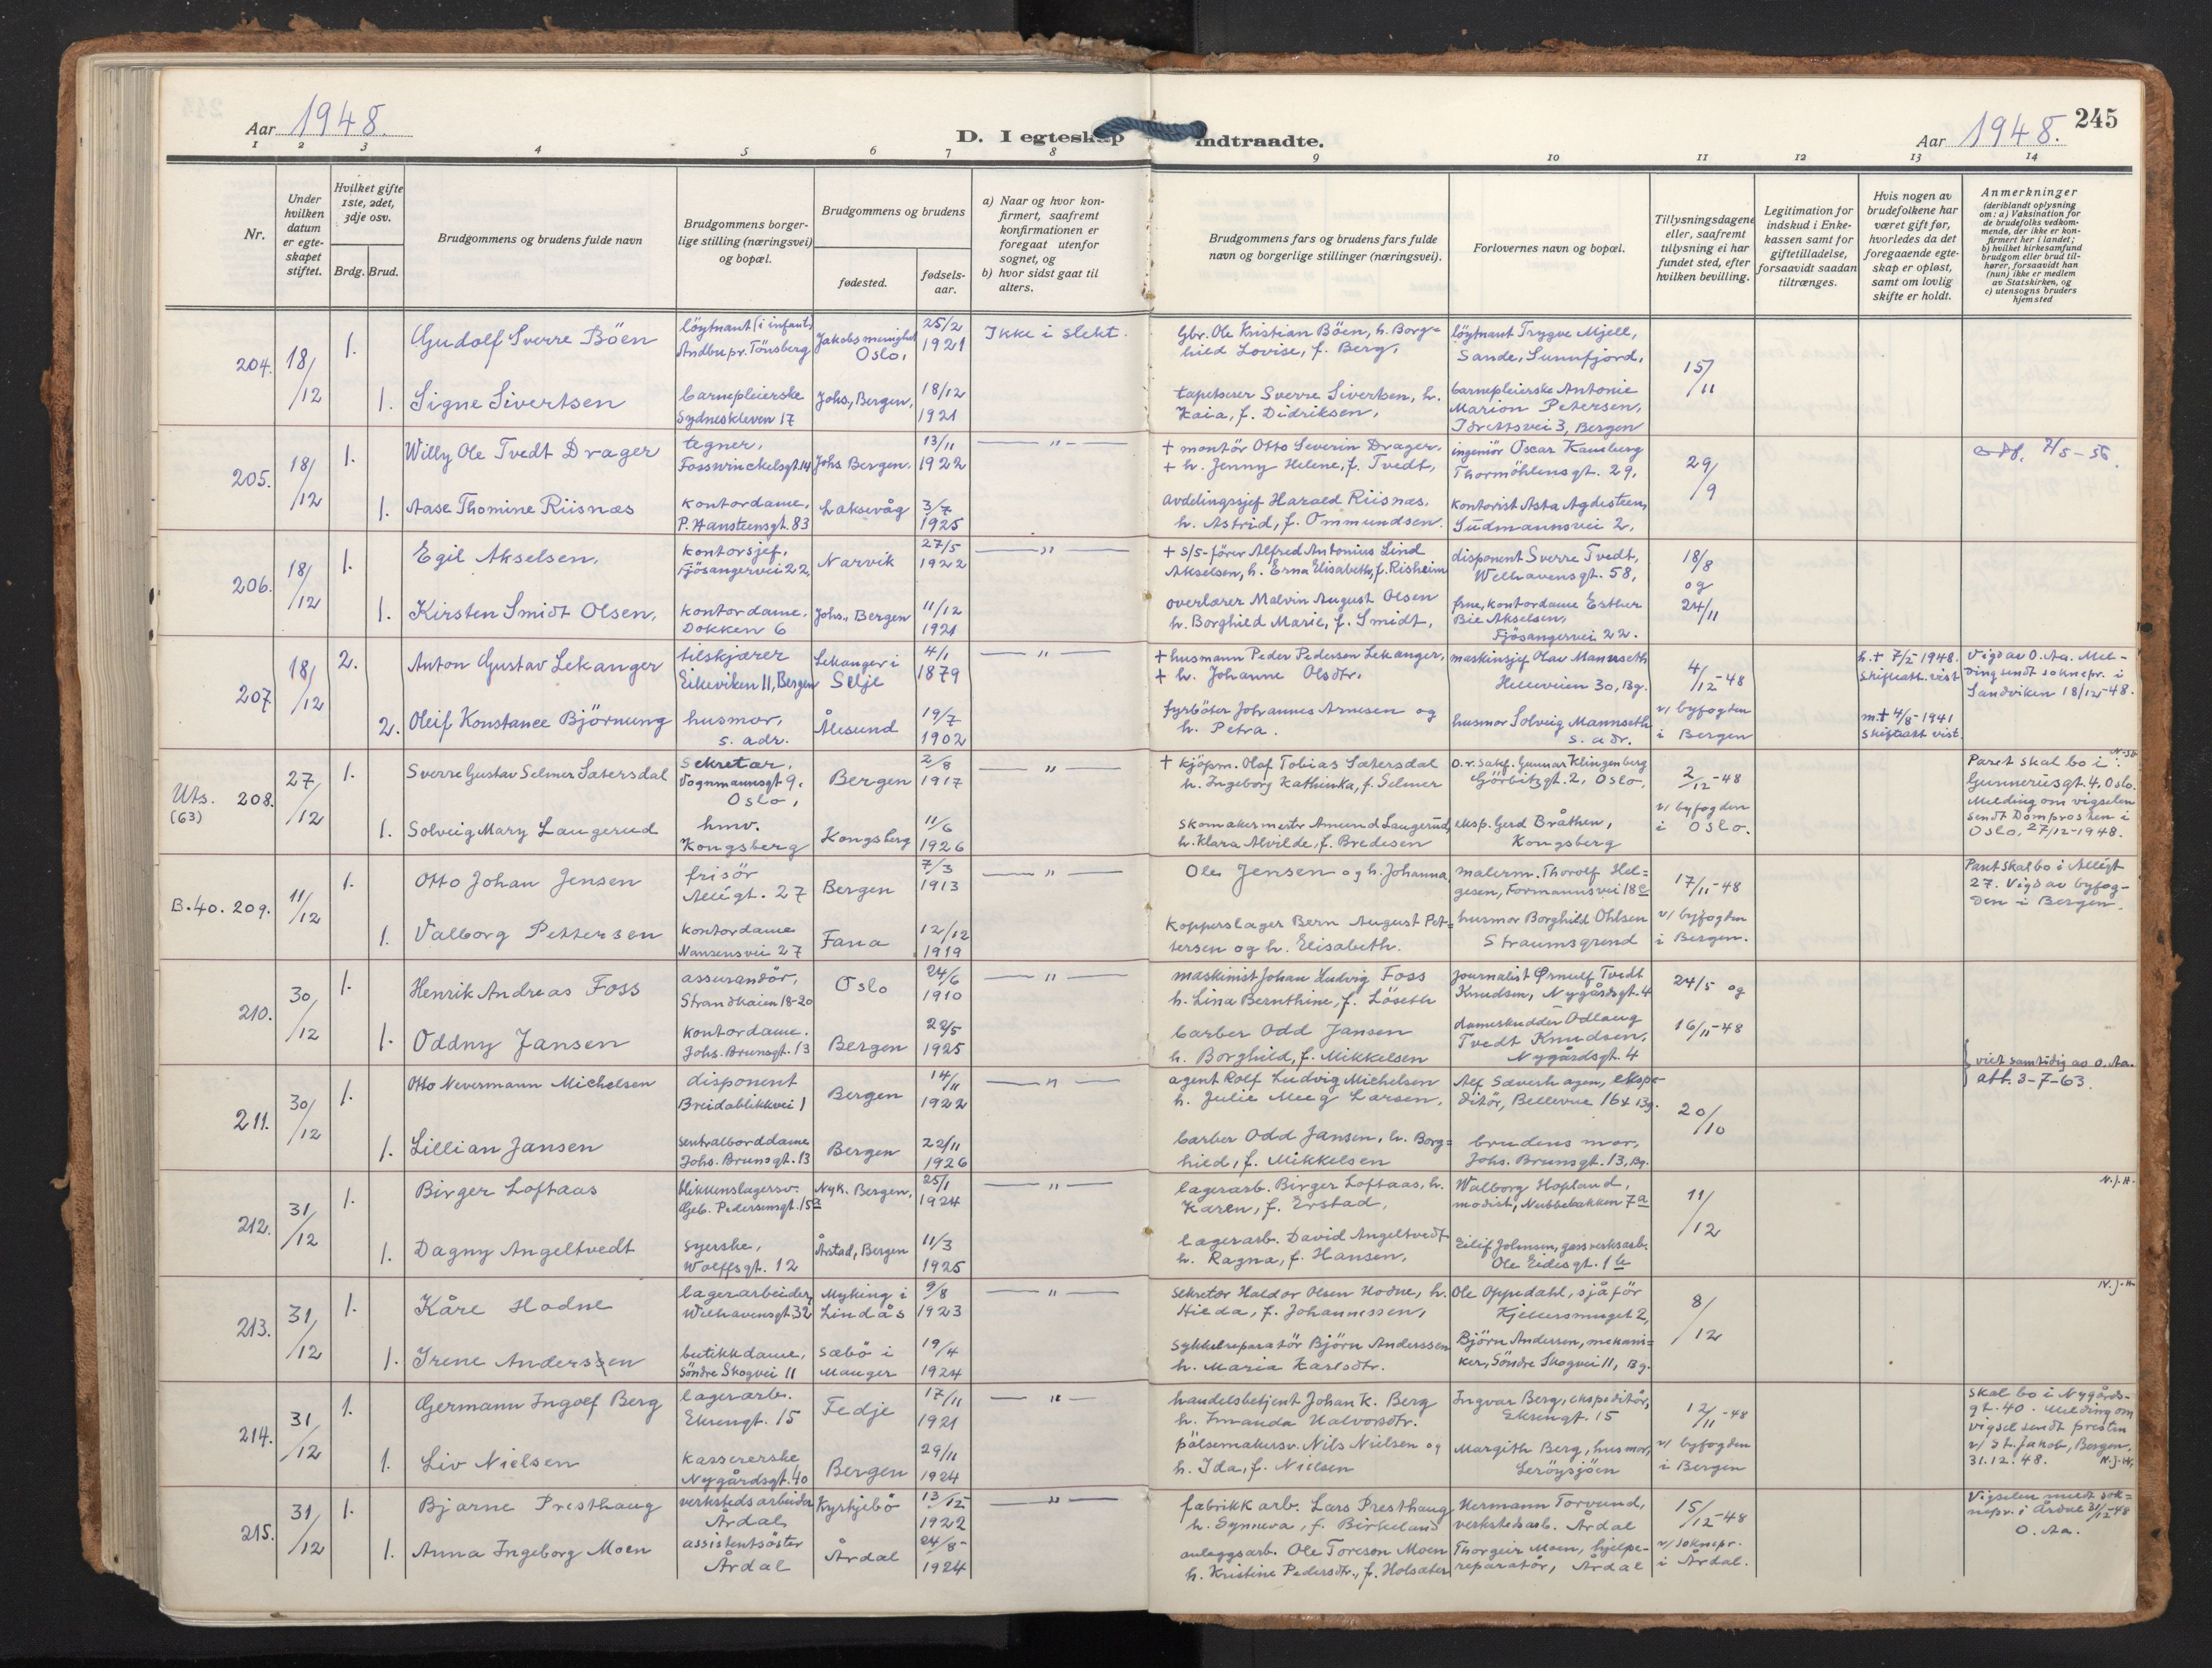 245
Aar 1948.
D. I egteskap indtraadte.
Aar 1948.
1 2 3 4 5 6 7 8 9 10 11 12 13 14
Nr.
Under hvilken datum er egte-skapet stiftet.
Hvilket gifte 1ste, 2det, 3dje osv.
Brdg. Brud.
Brudgommens og brudens fulde navn
Brudgommens borger-lige stilling (næringsvei) og bopæl.
Brudgommens og brudens
fødested.
fødsels-aar.
a) Naar og hvor kon-firmert, saafremt konfirmationen er foregaat utenfor sognet, og
b) hvor sidst gaat til alters.
Brudgommens fars og brudens fars fulde navn og borgerlige stillinger (næringsvei).
Forlovernes navn og bopæl.
Tillysningsdagene eller, saafremt tillysning ei har fundet sted, efter hvilken bevilling.
Legitimation for indskud i Enke-kassen samt for giftetilladelse, forsaavidt saadan tiltrænges.
Hvis nogen av brudefolkene har været gift før, hvorledes da det foregaaende egte-skap er opløst, samt om lovlig skifte er holdt.
Anmerkninger (deriblandt oplysning om: a) Vaksination for de brudefolks vedkom-mende, der ikke er kon-firmert her i landet; b) hvilket kirkesamfund brudgom eller brud til-hører, forsaavidt han (hun) ikke er medlem av Statskirken, og c) utensogns bruders hjemsted
204. 18/12 1. Gudolf Sverre Böen löytnant (i infant.) Andbu pr. Tönsberg Jakobs menighet Oslo, 25/2 1921 Ikke i slekt. Gbr. Ole Kristian Böen, h. Borg=hild Lovise, f. Berg, löytnant Trygve Mjell, Sande, Sunnfjord, 15/11
1. Signe Sivertsen barnepleierske Sydneskleven 17 Johs., Bergen, 18/12 1921 tapetserer Sverre Sivertsen, h. Kaia, f. Didriksen, barnepleierske Antonie Marion Petersen, Idrettsvei 3, Bergen
205. 18/12 1. Willy Ole Tvedt Drager tegner, Fosswinckelsgt. 14 Johs Bergen. 13/11 1922 — " — + montör Otto Severin Drager, + h. Jenny Helene, f. Tvedt, ingeniör Oscar Kamberg Thormöhlensgt. 29, 29/9
1. Aase Thomine Riisnæs kontordame, P. Hansteensgt. 83 Laksevåg 3/7 1925 avdelingssjef Harald Riisnæs, h. Astrid, f. Ommundsen. kontorist Asta Agdesteen, Gudmannsvei 2,
206. 18/12 1. Egil Akselsen, kontorsjef, Fjösangervei 22, Narvik 27/5 1922 — " — + s/s-förer Alfred Antonius Lind Akselsen, h. Erna Elisabeth, f. Risheim disponent Sverre Tvedt, Welhavensgt. 58, 18/8 og 24/11
1. Kirsten Smidt Olsen, kontordame, Dokken 6 Johs., Bergen 11/12 1921 overlærer Malvin August Olsen h. Borghild Marie, f. Smidt, frue, kontordame Esther Bie Akselsen, Fjösangervei 22.
207. 18/12 2. Anton Gustav Lekanger tilskjærer Eikeviken 11, Bergen Lekanger i Selje 4/1 1879 — " — + husmann Peder Pedersen Lekanger, + h. Johanne Olsdtr. maskinsjef Olav Mannseth Helleveien 30, Bg. 4/12-48 v/ byfogden i Bergen h. + 7/2 1948. Skifteatt. vist Vigd av O. Aa. Mel-ding sendt soknepr. i Sandviken 18/12-48.
2. Oleif Konstance Björnung husmor, s. adr. Ålesund 19/7 1902 fyrböter Johannes Arnesen og h. Petra. husmor Solveig Mannseth s. adr. m. + 4/8-1941 Skifteatt vist.
Uts. (63) 208. 27/12 1. Sverre Gustav Selmer Sætersdal sekretær, Vognmannsgt 9, Oslo, Bergen 2/8 1917 — " — + kjöpm. Olaf Tobias Sætersdal h. Ingeborg Kathinka, f. Selmer O.r. sakf. Gunnar Klingenberg Görbitzgt. 2, Oslo. 2/12-48 v/ byfogden i Oslo. Paret skal bo i Gunnerusgt. 4, Oslo. Melding om vigselen sendt Domprosten i Oslo, 27/12-1948.
1. Solveig Mary Laugerud hmv. Kongsberg Kongsberg 11/6 1926 skomakermester Amund Laugerud, h. Klara Alvilde, f. Bredesen eksp. Gerd Bråthen, Kongsberg
B. 40. 209. 11/12 1. Otto Johan Jensen frisör Allégt. 27 Bergen 7/3 1913 — " — Ole Jensen og h. Johanna, malerm. Thorolf Hel=gesen, Formannsvei 18 17/11-48 v/ byfogden i Bergen. Paret skal bo i Allégt 27. Vigd av byfog-den i Bergen.
1. Valborg Pettersen kontordame Nansensvei 27 Fana 12/12 1919 Kopperslager Bern August Pet=tersen og h. Elisabeth. husmor Borghild Ohlsen Straumsgrend
210. 30/12 1. Henrik Andreas Foss assurandör, Strandkaien 18-20 Oslo 24/6 1910 — " — maskinist Johan Ludvig Foss h. Lina Bernthine, f. Löseth journalist Ørnulf Tvedt Knudsen, Nygårdsgt. 4 24/5 og 16/11-48
1. Oddny Jansen kontordame. Johs. Brunsgt. 13 Bergen 22/5 1925 barber Odd Jansen h. Borghild, f. Mikkelsen dameskredder Odlaug Tvedt Knudsen, Nygårdsgt. 4
viet samtidig av O. Aa.
att. 3-7-63.
211. 30/12 1. Otto Nevermann Michelsen disponent Breidablikkvei 1 Bergen 14/11 1922 — " — agent Rolf Ludvig Michelsen h. Julie Meeg Larsen, Alf Sæverhagen, ekspe-ditör, Bellevue 16 Bg. 20/10
1. Lillian Jansen sentralborddame Johs. Brunsgt. 13 Bergen 22/11 1926 barber Odd Jansen, h. Borg=hild, f. Mikkelsen brudens mor, Johs. Brunsgt. 13, Bg.
212. 31/12 1. Birger Loftaas blikkenslagersv. Geb. Pedersensgt. 15 Nyk. Bergen, 25/1 1924 — " — lagerarb. Birger Loftaas, h. Karen, f. Erstad, Walborg Hopland, modist, Nubbebakken 7a 11/12 N.J.H.
1. Dagny Angeltvedt syerske, Wolffsgt. 12 Årstad, Bergen 11/3 1925 lagerarb. David Angeltvedt h. Ragna, f. Hansen, Eilif Johnsen, gassverksarb. Ole Eidesgt. 1b
213. 31/12 1. Kåre Hodne lagerarbeider, Welhavensgt. 32 Myking i Lindås 9/8 1923 — " — sekretær Haldor Olsen Hodne, h. Hilda, f. Johannessen, Ole Oppedahl, sjåför Kjellersmuget 2, 8/12 N.J.H.
1. Irene Anderssen butikkdame, Söndre Skogvei 11 Sæbö i Manger 19/4 1924 sykkelreparatör Björn Anderssen h. Maria Karlsdtr. Björn Andersen, mekani=ker, Söndre Skogvei 11, Bg.
214. 31/12 1. Germann Ingolf Berg lagerarb. Ekrengt. 15 Fedje 17/11 1921 — " — handelsbetjent Johan K. Berg h. Imanda Halvorsdtr. Ingvar Berg, ekspeditör, Ekrengt. 15 12/11-48 v/ byfogden i Bergen Skal bo i Nygårds-gt. 40. Melding om vigsel sendt presten v/ St. Jakob, Bergen, 31.12.48. N.J.H.
1. Liv Nielsen kassererske Nygårdsgt. 40 Bergen 29/11 1924 pölsemakersv. Nils Nielsen og h. Ida, f. Nielsen Margith Berg, husmor, Leröysjöen
215. 31/12 1. Bjarne Presthaug verkstedsarbeider Årdal Kyrkjebö 13/12 1922 — " — fabrikkarb. Lars Presthaug h. Synneva, f. Birkeland Hermann Torvund, verkstedsarb. Årdal 15/12-48 v/ soknepr. i Årdal. Vigselen meldt sok=nepr. i Årdal 31/12-48 O. Aa.
1. Anna Ingeborg Moen assistentsöster Årdal Årdal 24/8- 1924 anleggsarb. Ole Toreson Moen h. Kristine Pedersdtr., f. Holsæter Thorgeir Moen, hjelpe-reparatör, Årdal